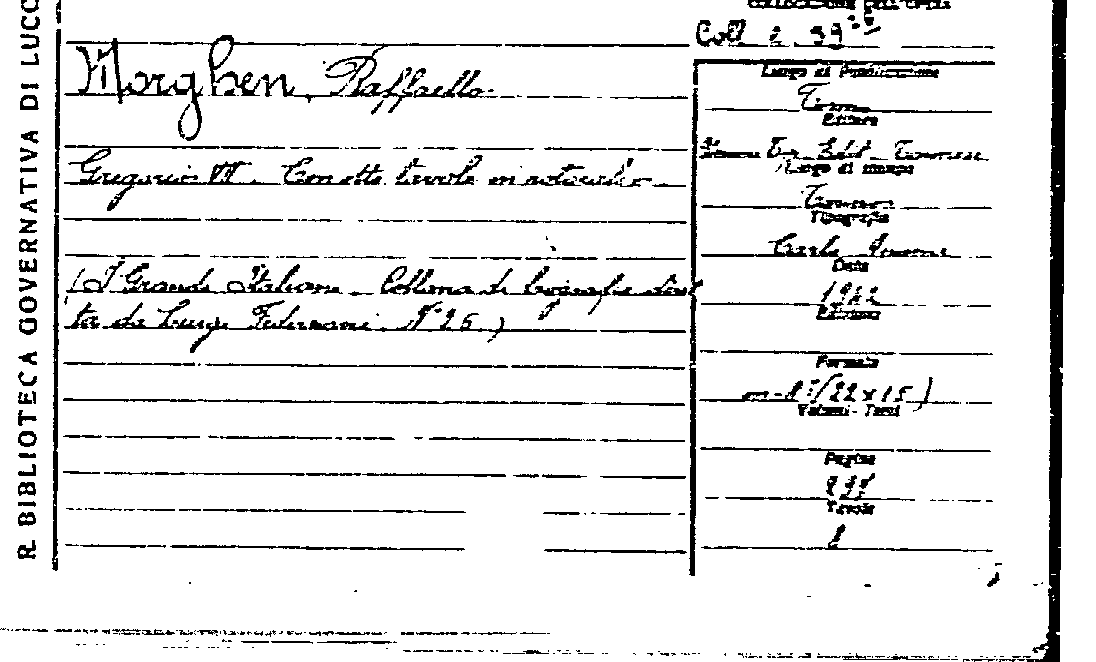 R. BIBLIOTECA GOVERNATIVA DI LUCC
COLLOCAZIONE DELL'OPERA
Coll. 2. 39
Morghen, Raffaello
Gregorio VII. Con otto tavole in rotocalco.
(I Grandi Italiani. Collana di biografie diret
ta da Luigi Federzoni. N° 26.)
Luogo di Pubblicazione
Torino
Editore
Tip. Edit. Torinese
Luogo di stampa
Torino
Tipografia
Carlo
Data
1942
Edizione
Formato
in-8° (22x15)
Volumi - Tomi
Pagine
Tavole
8